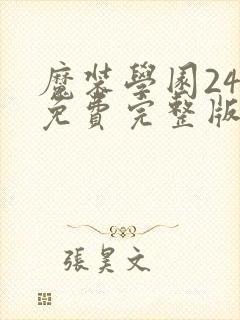 魔裝學園24
免費完整版
張昊文